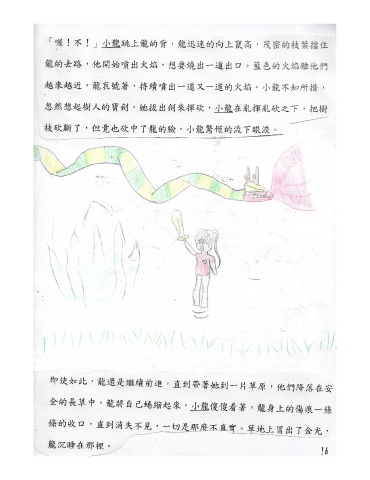 「喔!不!」小龍跳上龍的背,龍迅速的向上竄高,茂密的枝葉擋住
龍的去路,他開始噴出火焰,想要燒出一道出口。藍色的火焰離他們
越來越近,龍哀號著,持續噴出一道又一道的火焰。小龍不知所措,
忽然想起樹人的寶劍,她拔出劍來揮砍,小龍在亂揮亂砍之下,把樹
枝砍斷了,但竟也砍中了龍的臉,小龍驚怪的流下眼淚。
即使如此,龍還是繼續前進,直到帶著她到一片草原,他們降落在安
全的長草中,龍將自己蜷縮起來,小龍傻傻看著,龍身上的傷痕一條
條的收口,直到消失不見,一切是那麼不真實。草地上冒出了金光,
龍沉睡在那裡。
16